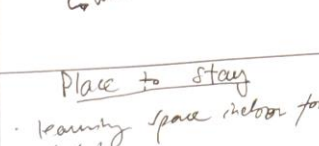 Place to stay
. learning space indoor fo